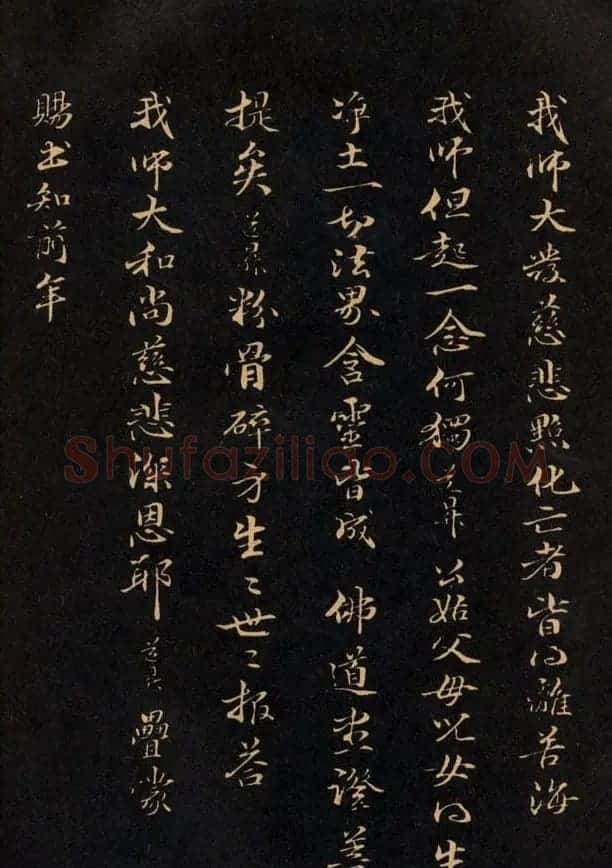 我師大發慈悲點化亡者皆得離苦海
我師但起一念何獨道昇公姑父母兒女得生
淨土一切法界含靈皆成佛道悉證菩
提矣道昇粉骨碎身生〻世〻報答
我師大和尚慈悲深恩耶道昇疊蒙
賜書知前年
Shufaziliao.COM